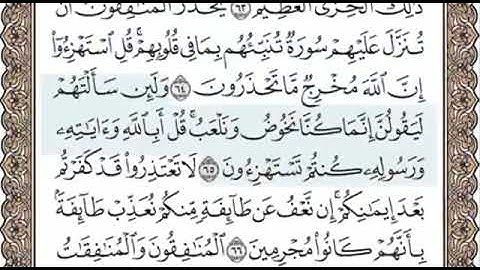 ذَٰلِكَ ٱلْخِزْىُ ٱلْعَظِيمُ ٦٣ يَحْذَرُ ٱلْمُنَٰفِقُونَ أَن
تُنَزَّلَ عَلَيْهِمْ سُورَةٌ تُنَبِّئُهُم بِمَا فِى قُلُوبِهِمْ ۚ قُلِ ٱسْتَهْزِءُوٓا۟
إِنَّ ٱللَّهَ مُخْرِجٌ مَّا تَحْذَرُونَ ٦٤ وَلَئِن سَأَلْتَهُمْ
لَيَقُولُنَّ إِنَّمَا كُنَّا نَخُوضُ وَنَلْعَبُ ۚ قُلْ أَبِٱللَّهِ وَءَايَٰتِهِۦ
وَرَسُولِهِۦ كُنتُمْ تَسْتَهْزِءُونَ ٦٥ لَا تَعْتَذِرُوا۟ قَدْ كَفَرْتُم
بَعْدَ إِيمَٰنِكُمْ ۚ إِن نَّعْفُ عَن طَآئِفَةٍ مِّنكُمْ نُعَذِّبْ طَآئِفَةًۢ
بِأَنَّهُمْ كَانُوا۟ مُجْرِمِينَ ٦٦ ٱلْمُنَٰفِقُونَ وَٱلْمُنَٰفِقَٰتُ